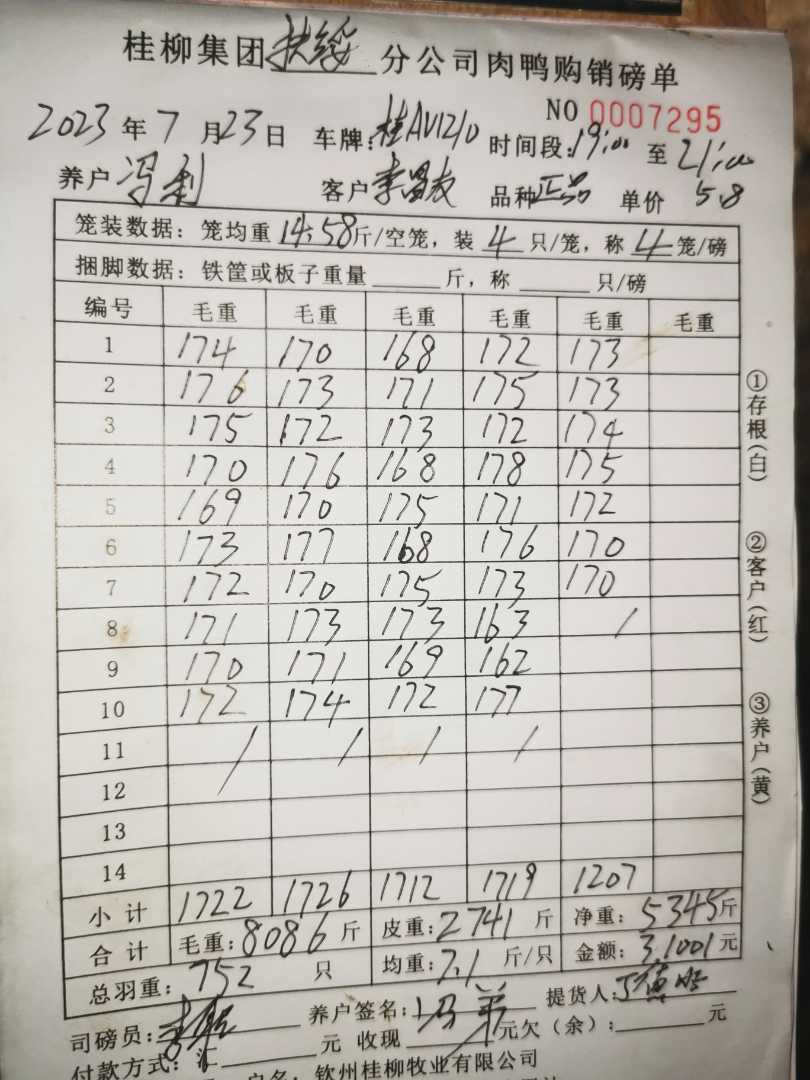 桂柳集团扶绥分公司肉鸭购销磅单
NO 0007295
2023年7月23日 车牌:桂AV1210 时间段:19:00至21:00
养户 冯利 客户 李昌友 品种 正品 单价 5.8
笼装数据: 笼均重 14.58斤/空笼, 装 4 只/笼, 称 4 笼/磅
捆脚数据: 铁筐或板子重量 斤, 称 只/磅
编号 毛重 毛重 毛重 毛重 毛重 毛重
1 174 170 168 172 173
2 176 173 171 175 173
3 175 172 173 172 174
4 170 176 168 178 175
5 169 170 175 171 172
6 173 177 168 176 170
7 172 170 175 173 170
8 171 173 173 163 /
9 170 171 169 162
10 172 174 172 177
11 / / / /
12
13
14
小计 1722 1726 1712 1719 1207
合计 毛重:8086斤 皮重:2741斤 净重:5345斤
总羽重: 752 只 均重:7.1 斤/只 金额:31001元
司磅员: 养户签名: 冯 提货人:
付款方式:汇 元 收现 元欠(余): 元
户名: 钦州桂柳牧业有限公司
①存根(白)
②客户(红)
③养户(黄)